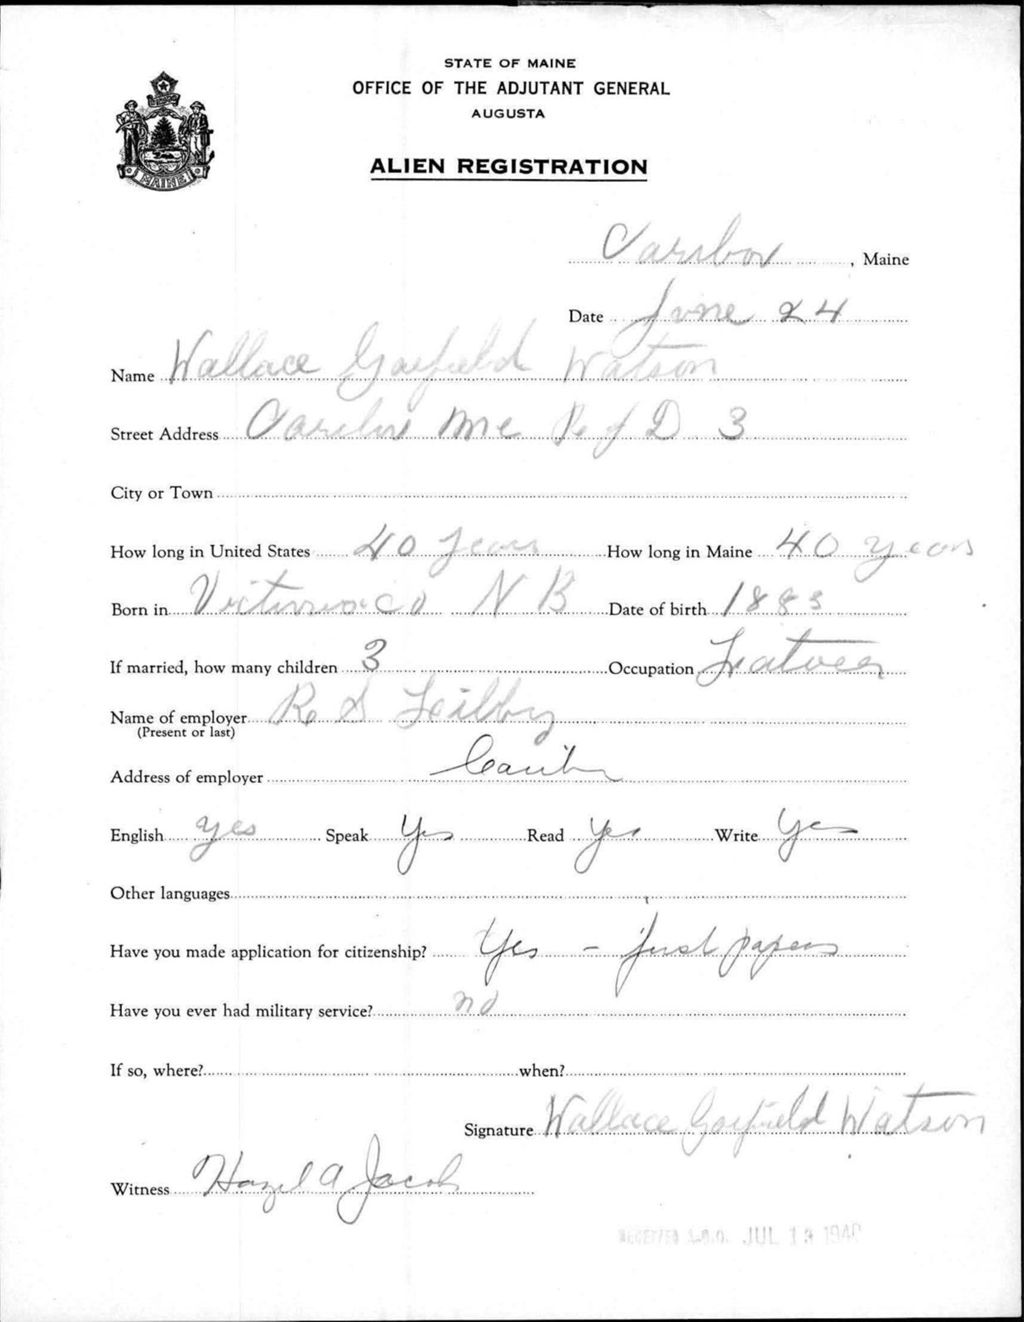 STATE OF MAINE
OFFICE OF THE ADJUTANT GENERAL
AUGUSTA
MAINE
ALIEN REGISTRATION
Caribou, Maine
Date June 24
Name Wallace Garfield Watson
Street Address Caribou Me R f D 3
City or Town
How long in United States 40 years How long in Maine 40 years
Born in N B Date of birth 1883
If married, how many children 3 Occupation
Name of employer R S
(Present or last)
Address of employer Caribou
English yes Speak Yes Read Yes Write Yes
Other languages
Have you made application for citizenship? Yes - first papers
Have you ever had military service? no
If so, where? when?
Signature Wallace Garfield Watson
Witness Hazel A Jacob
RECEIVED A.G.O. JUL 13 1940